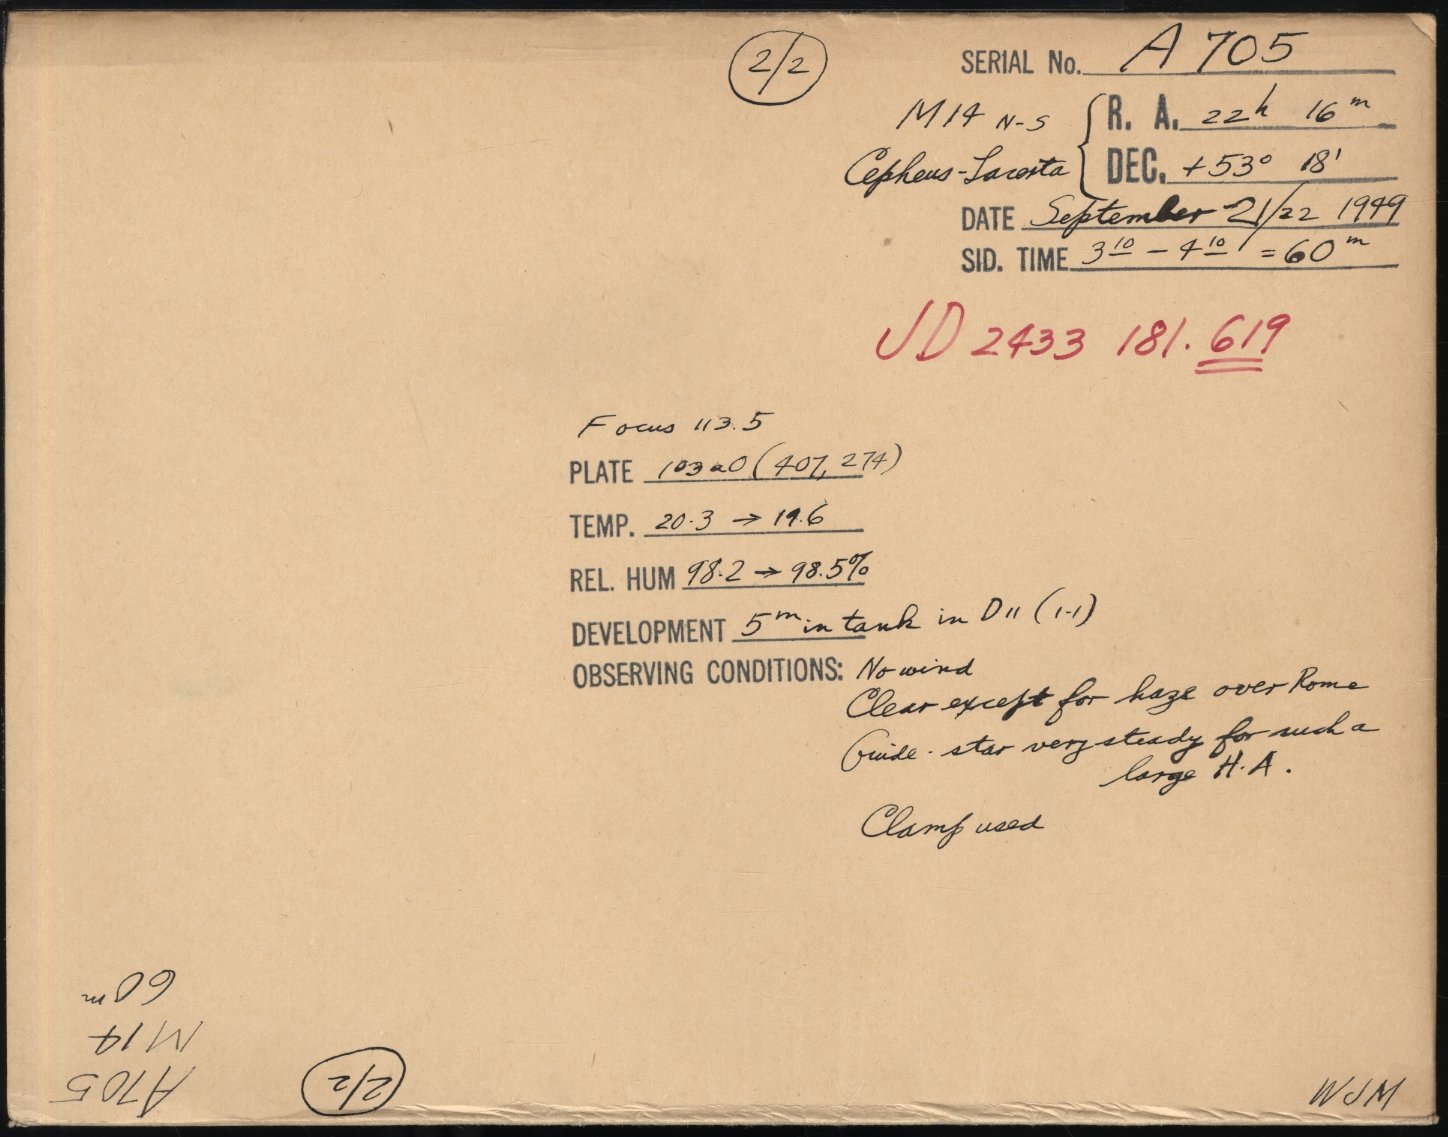 2/2
SERIAL No. A 705
M 14 N-S { R. A. 22h 16m
Cepheus-Lacerta DEC. +53° 18'
DATE September 21/22 1949
SID. TIME 3 10 – 4 10 = 60m
JD 2433 181.619
Focus 113.5
PLATE 103aO (407, 274)
TEMP. 20.3 → 19.6
REL. HUM 98.2 → 98.5%
DEVELOPMENT 5m in tank in D11 (1-1)
OBSERVING CONDITIONS: No wind
Clear except for haze over Rome
Guide-star very steady for such a
large H.A.
Clamp used
60m
M 14
A705
2/2
WJM